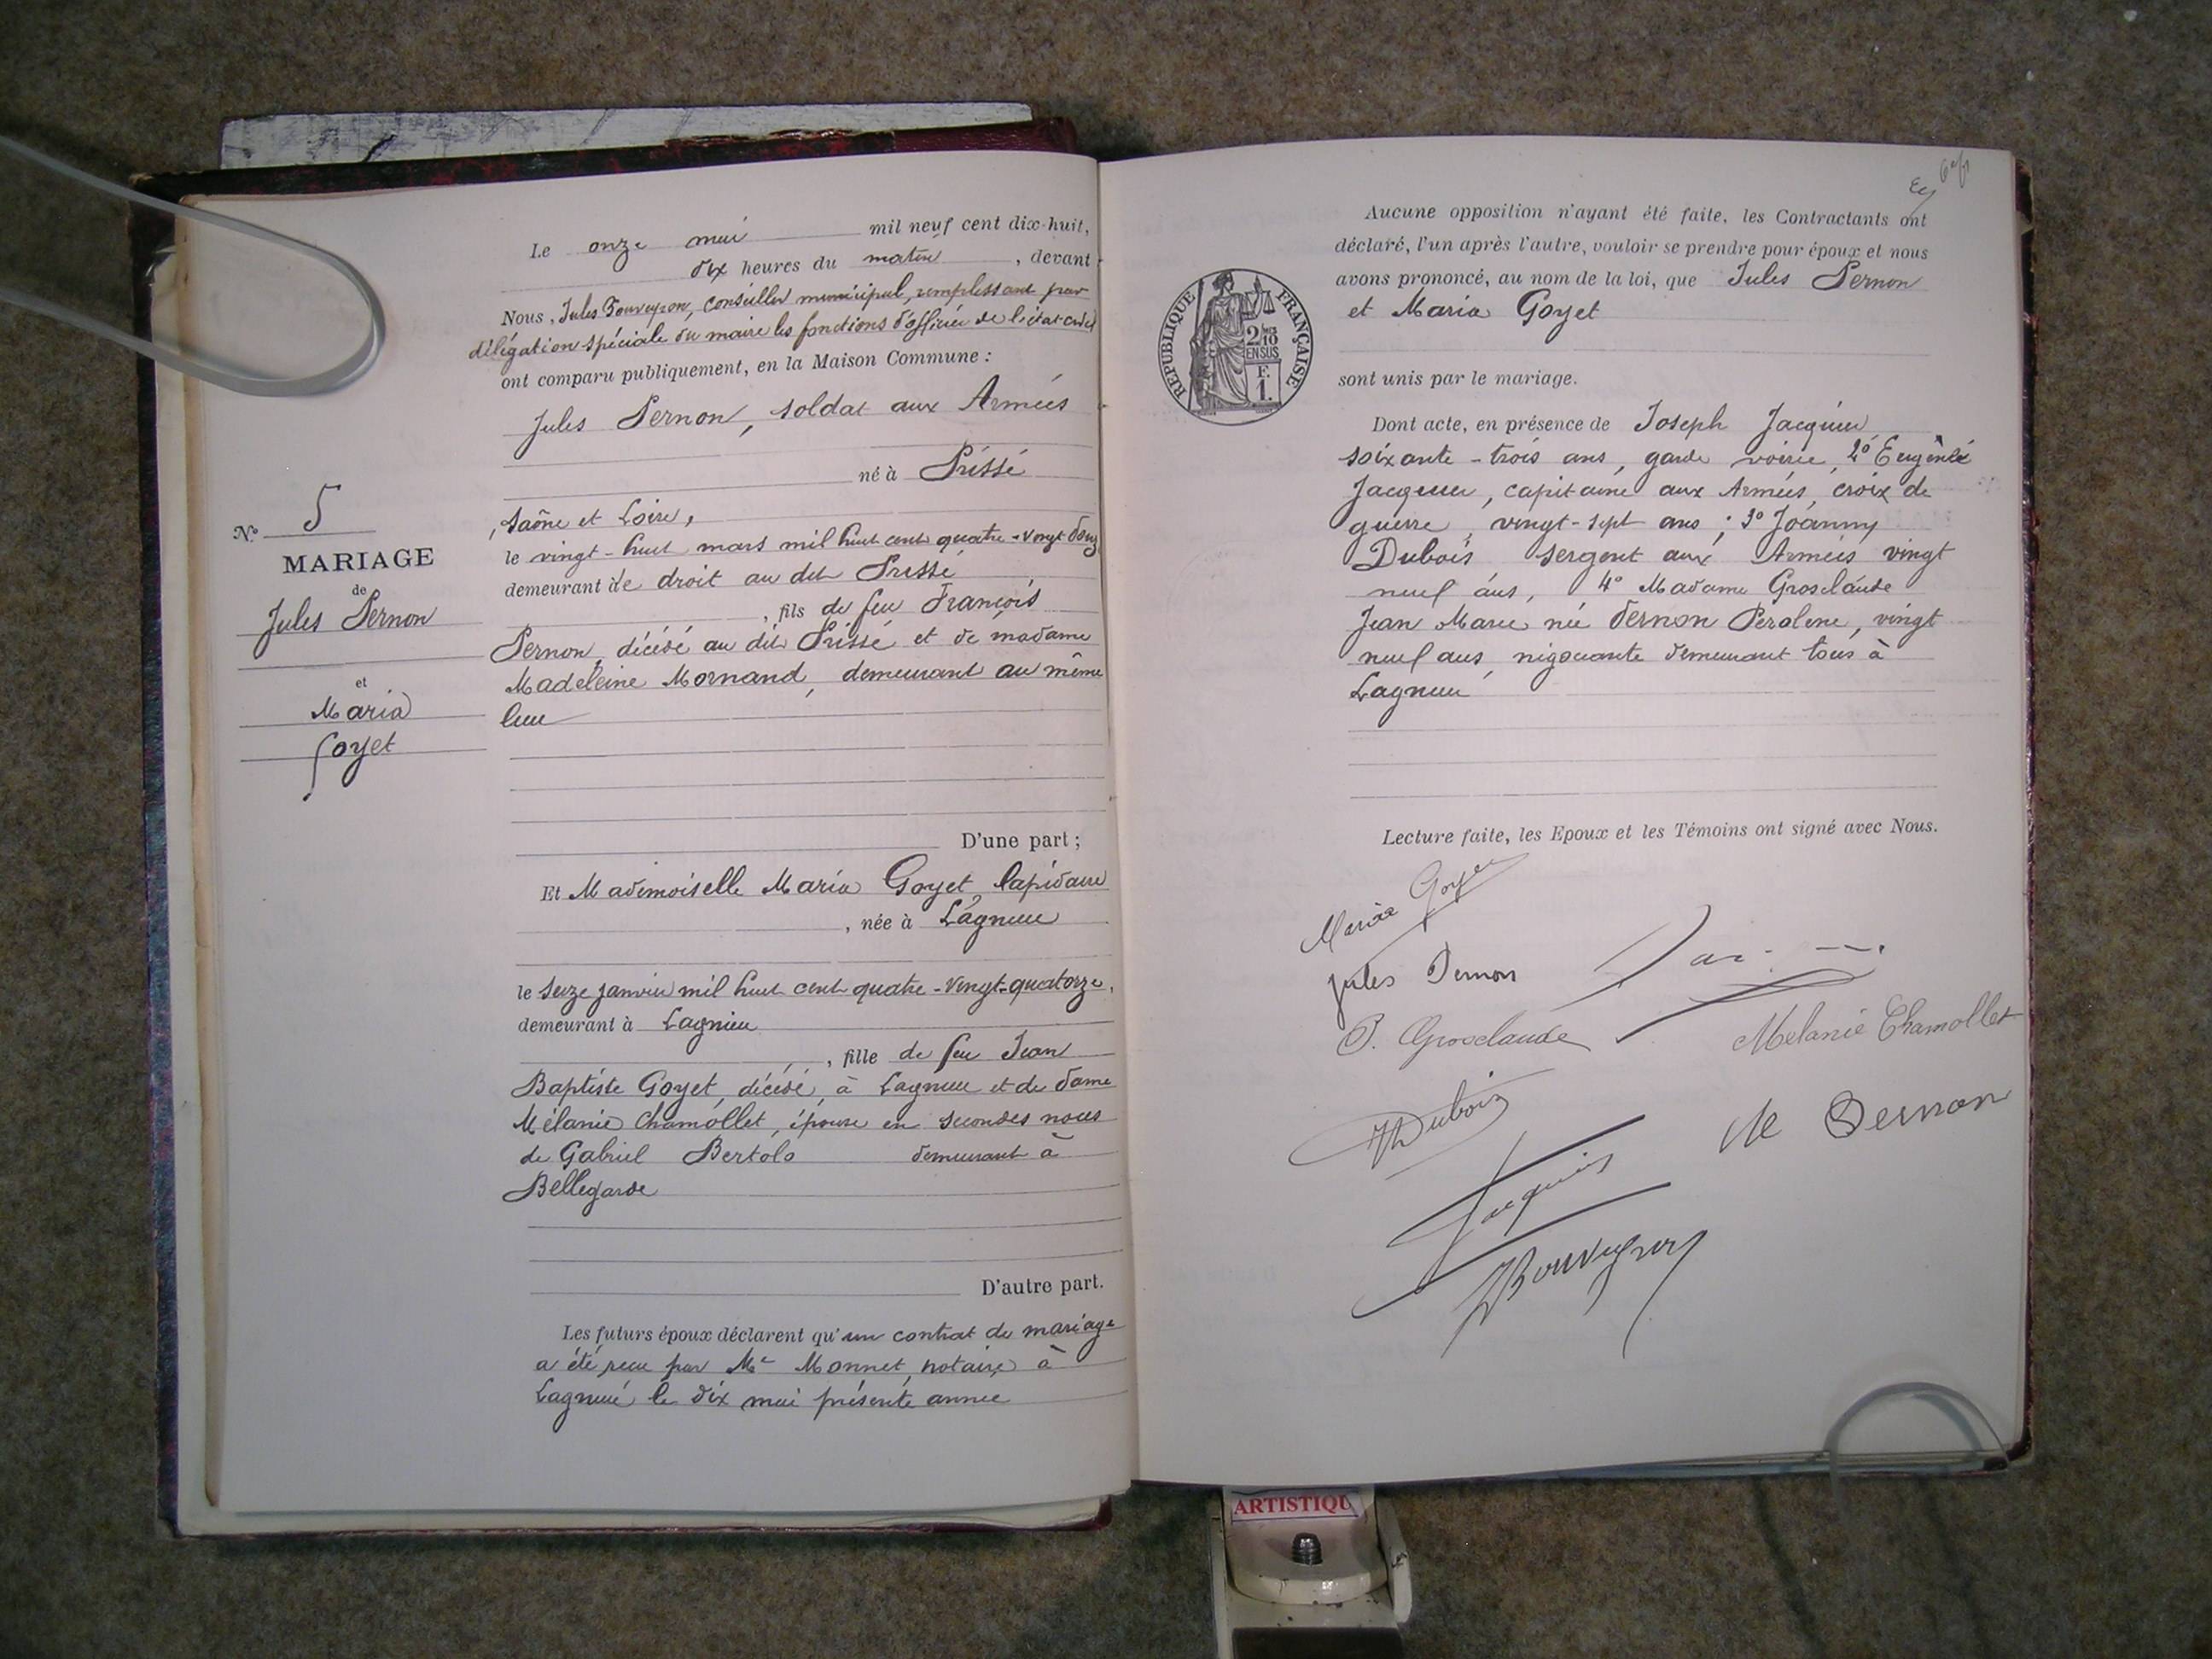 Le onze mai mil neuf cent dix-huit,
dix heures du matin, devant
Nous, Jules Bouveyron, conseiller municipal, remplissant par
délégation spéciale du maire les fonctions d'officier de l'état-civil
ont comparu publiquement, en la Maison Commune :
Jules Pernon, soldat aux Armées
né à Prissé
, Saône et Loire,
le vingt-huit mars mil huit cent quatre-vingt douze
demeurant de droit au dit Prissé
, fils de feu François
Pernon, décédé au dit Prissé et de madame
Madeleine Mornand, demeurant au même
lieu
D'une part ;
N° 5
MARIAGE
de
Jules Pernon
et
Maria
Goyet
Et Mademoiselle Maria Goyet lapidaire
, née à Lagnieu
le seize janvier mil huit cent quatre-vingt-quatorze,
demeurant à Lagnieu
, fille de feu Jean
Baptiste Goyet, décédé, à Lagnieu et de dame
Mélanie Chamollet, épouse en secondes noces
de Gabriel Bertolo demeurant à
Bellegarde
D'autre part.
Les futurs époux déclarent qu'un contrat de mariage
a été reçu par Me Monnet, notaire, à
Lagnieu le dix mai présente année
Aucune opposition n'ayant été faite, les Contractants ont
déclaré, l'un après l'autre, vouloir se prendre pour époux et nous
avons prononcé, au nom de la loi, que Jules Pernon
et Maria Goyet
sont unis par le mariage.
RÉPUBLIQUE FRANÇAISE
2/10
EN SUS
F.
1.
Dont acte, en présence de Joseph Jacquier
soixante-trois ans, garde voirie, 2° Eugène
Jacquier, capitaine aux Armées, croix de
guerre, vingt-sept ans ; 3° Joanny
Dubois sergent aux Armées vingt
neuf ans, 4° Madame Grosclaude
Jean Marie née Pernon Peroline, vingt
neuf ans, négociante demeurant tous à
Lagnieu
Lecture faite, les Epoux et les Témoins ont signé avec Nous.
Maria Goyet
Jules Pernon
P. Grosclaude
Mélanie Chamollet
Dubois
Pernon
Jacquier
Bouveyron
ARTISTIQU